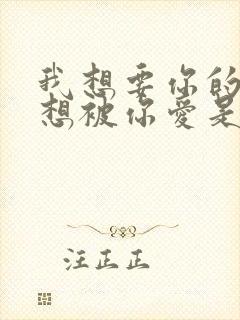 我想要你的
想被你爱是
汪正正